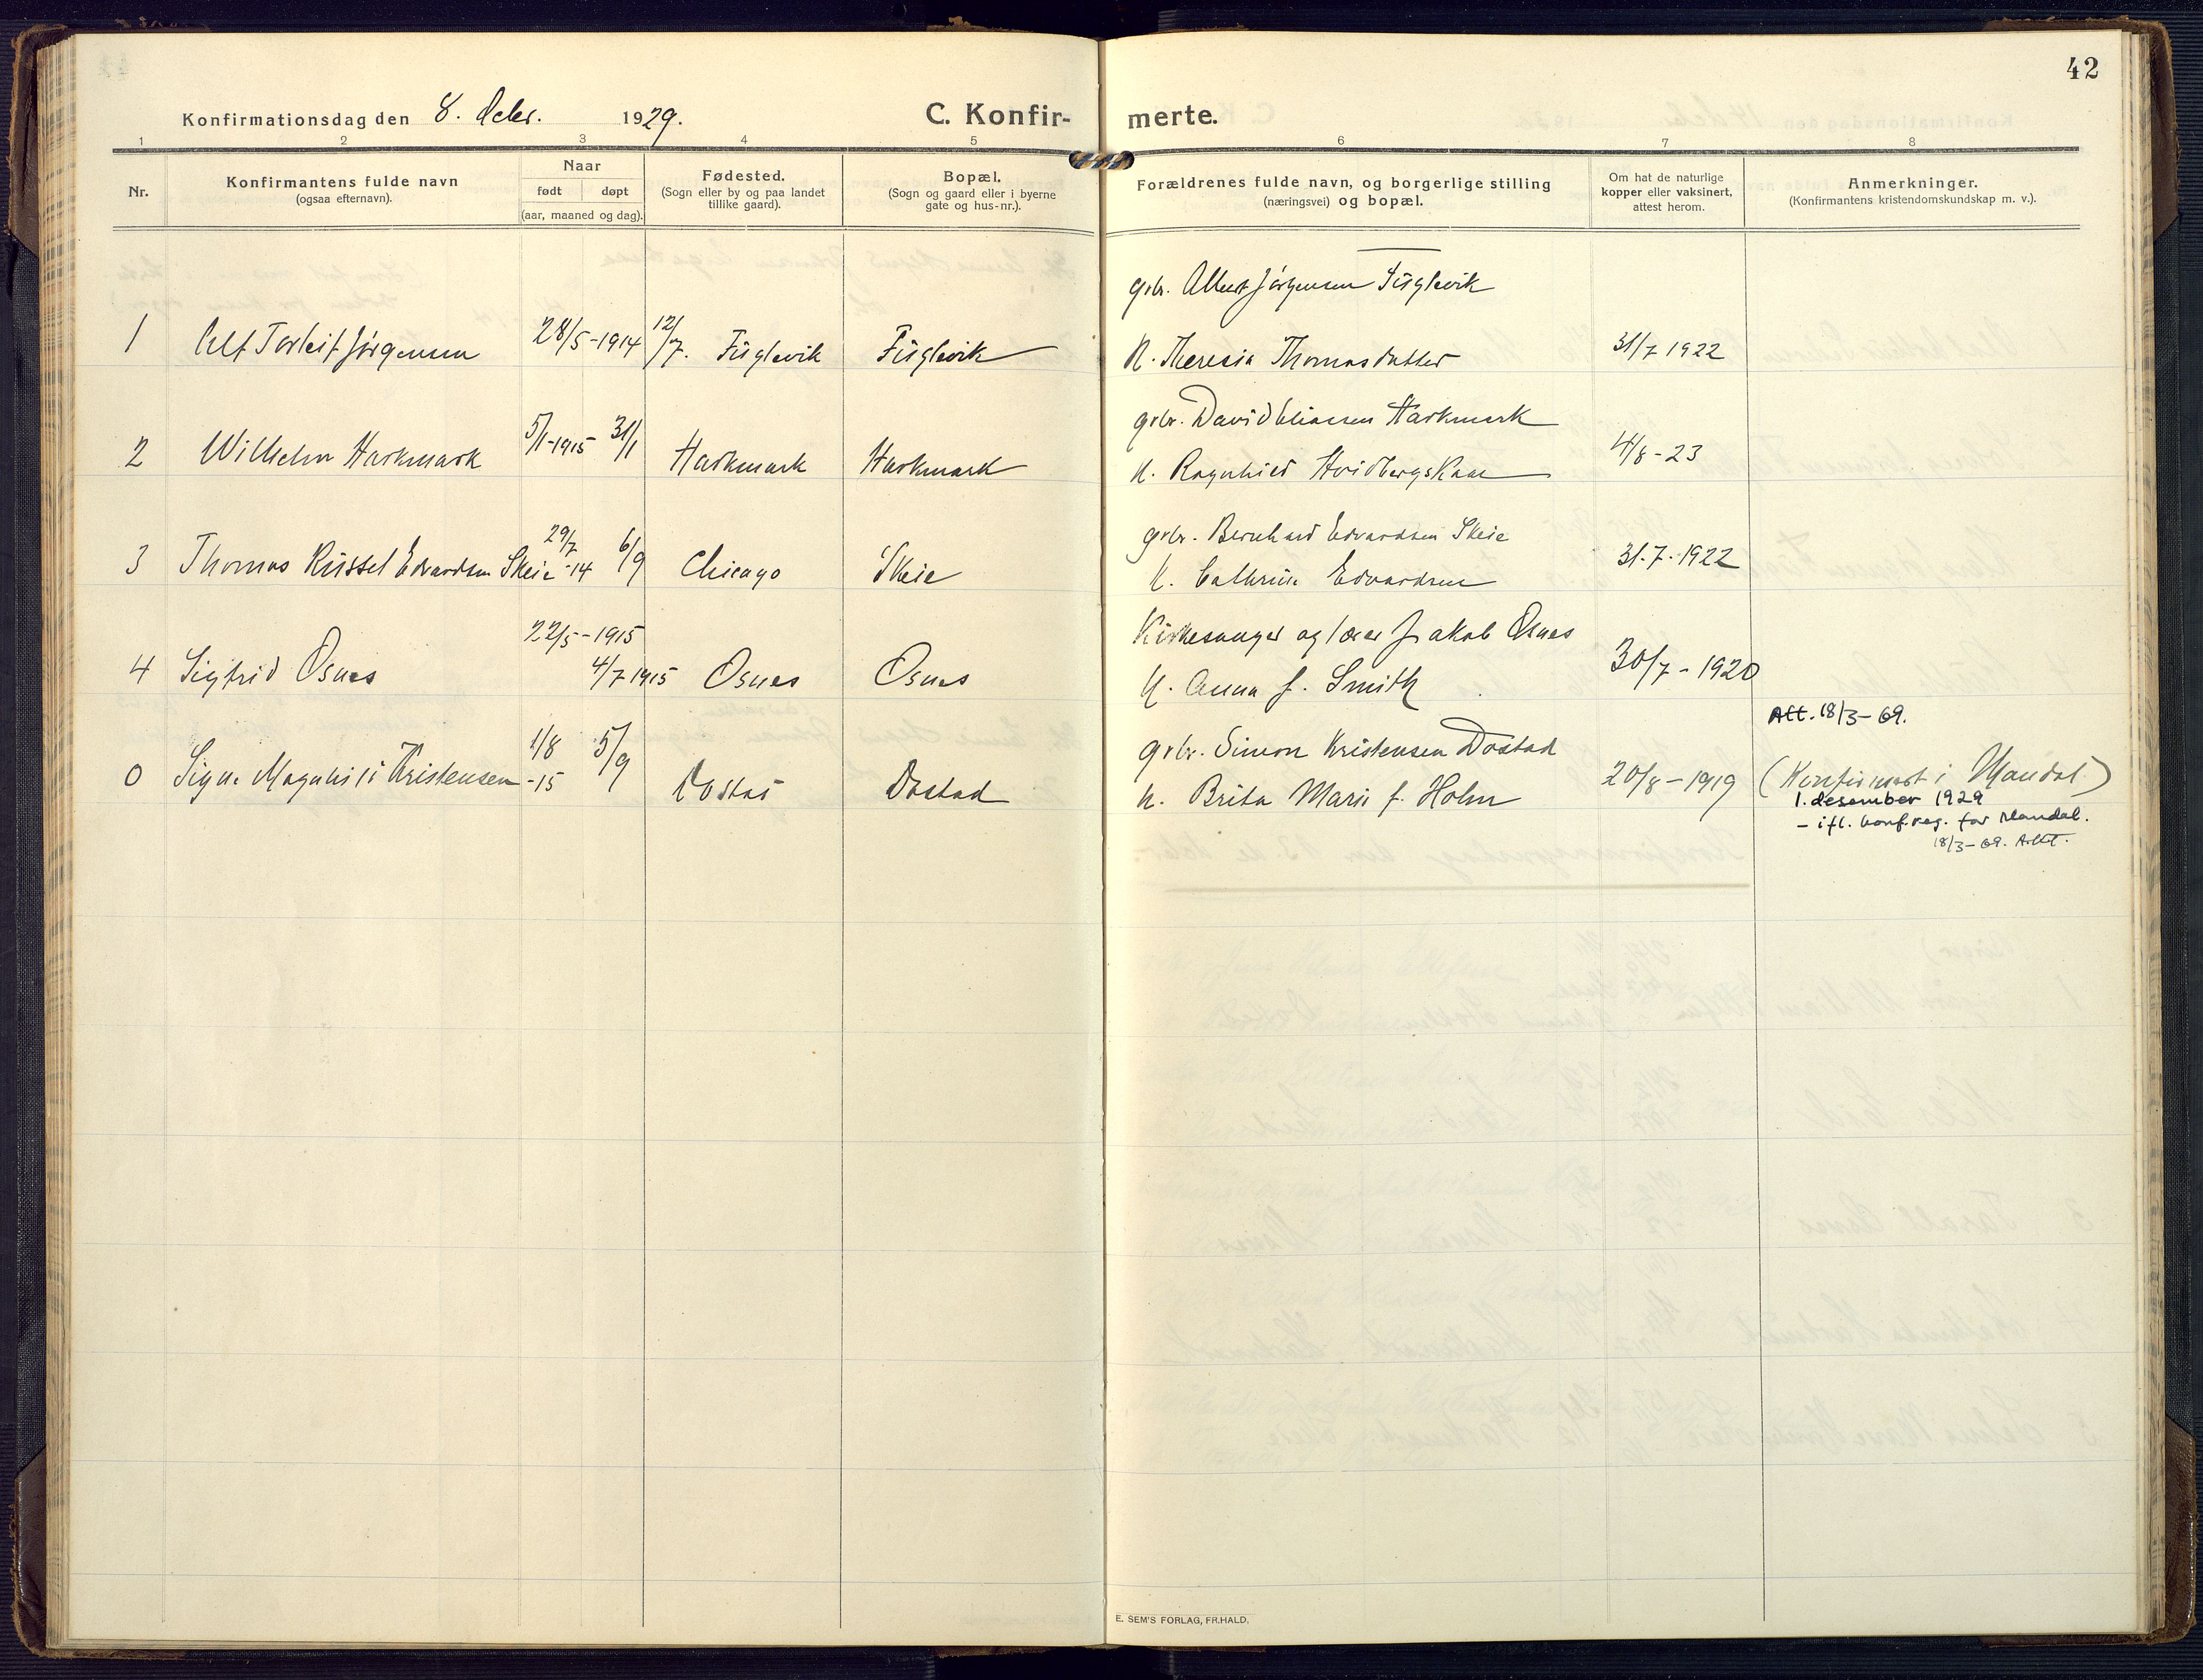 42
Konfirmationsdag den 8. decbr. 1929.
C. Konfirmerte.
1 2 3 4 5 6 7 8
Nr.
Konfirmantens fulde navn
(ogsaa efternavn).
Naar
født døpt
(aar, maaned og dag).
Fødested.
(Sogn eller by og paa landet
tillike gaard).
Bopæl.
(Sogn og gaard eller i byerne
gate og hus-nr.).
Forældrenes fulde navn, og borgerlige stilling
(næringsvei) og bopæl.
Om hat de naturlige
kopper eller vaksinert,
attest herom.
Anmerkninger.
(Konfirmantens kristendomskundskap m. v.).
grbr. Albert Jörgensen Fuglevik
1 Alf Torleif Jörgensen 28/5-1914 12/7. Fuglevik Fuglevik H. Theresia Thomasdatter 31/7 1922
grbr. David Eliassen Harkmark
2 Wilhelm Harkmark 5/1-1915 31/1 Harkmark Harkmark H. Ragnhild Hvidbergskaar 4/8-23
grbr. Bernhard Edvardsen Skeie
3 Thomas Russel Edvardsen Skeie 29/7-14 6/9 Chicago Skeie H. Cathrine Edvardsen 31.7.1922
22/5-1915 Kirkesanger og lærer Jakob Osnes
4 Sigfrid Osnes 4/7 1915 Osnes Osnes H. Anna f. Smith 30/7-1920
Att. 18/3-69.
grbr. Simon Kristensen Dostad
0 Signe Magnhild Kristensen 1/8-15 5/9 Dostad Dostad H. Brita Marie f. Holm 20/8-1919 (Konfirmert i Mandal)
1. desember 1929
- ifl. konf.reg. for Mandal.
18/3-69.
E. SEM'S FORLAG, FR.HALD.